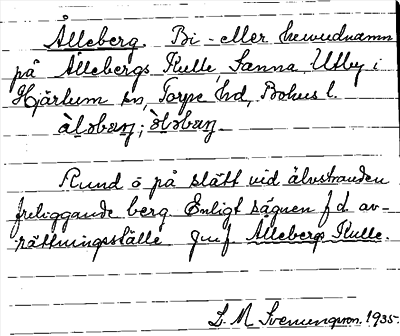 Ålleberg. Bi- eller huvudnamn
på Ållebergs Kulle, Sanna, Utby i
Hjärtum sn, Torpe hd, Bohus l.
Rund ö på slätt vid älvstranden
freliggande berg. Enligt sägnen f.d. av-
rättningsställe Jmf Ållebergs Kulle.
L. M. Svenungsson. 1935.